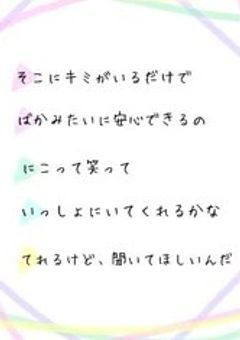 そこにキミがいるだけで
ばかみたいに安心できるの
にこって笑って
いっしょにいてくれるかな
てれるけど、聞いてほしいんだ